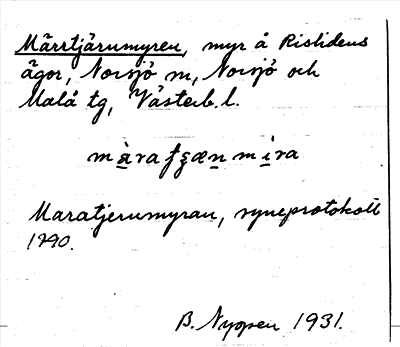 Märrtjärumyren, myr å Rislidens
ägor, Norsjö sn, Norsjö och
Malå tg, Västerb. l.
Maratjerumyran, syneprotokoll
1790.
B. Nyopen 1931.